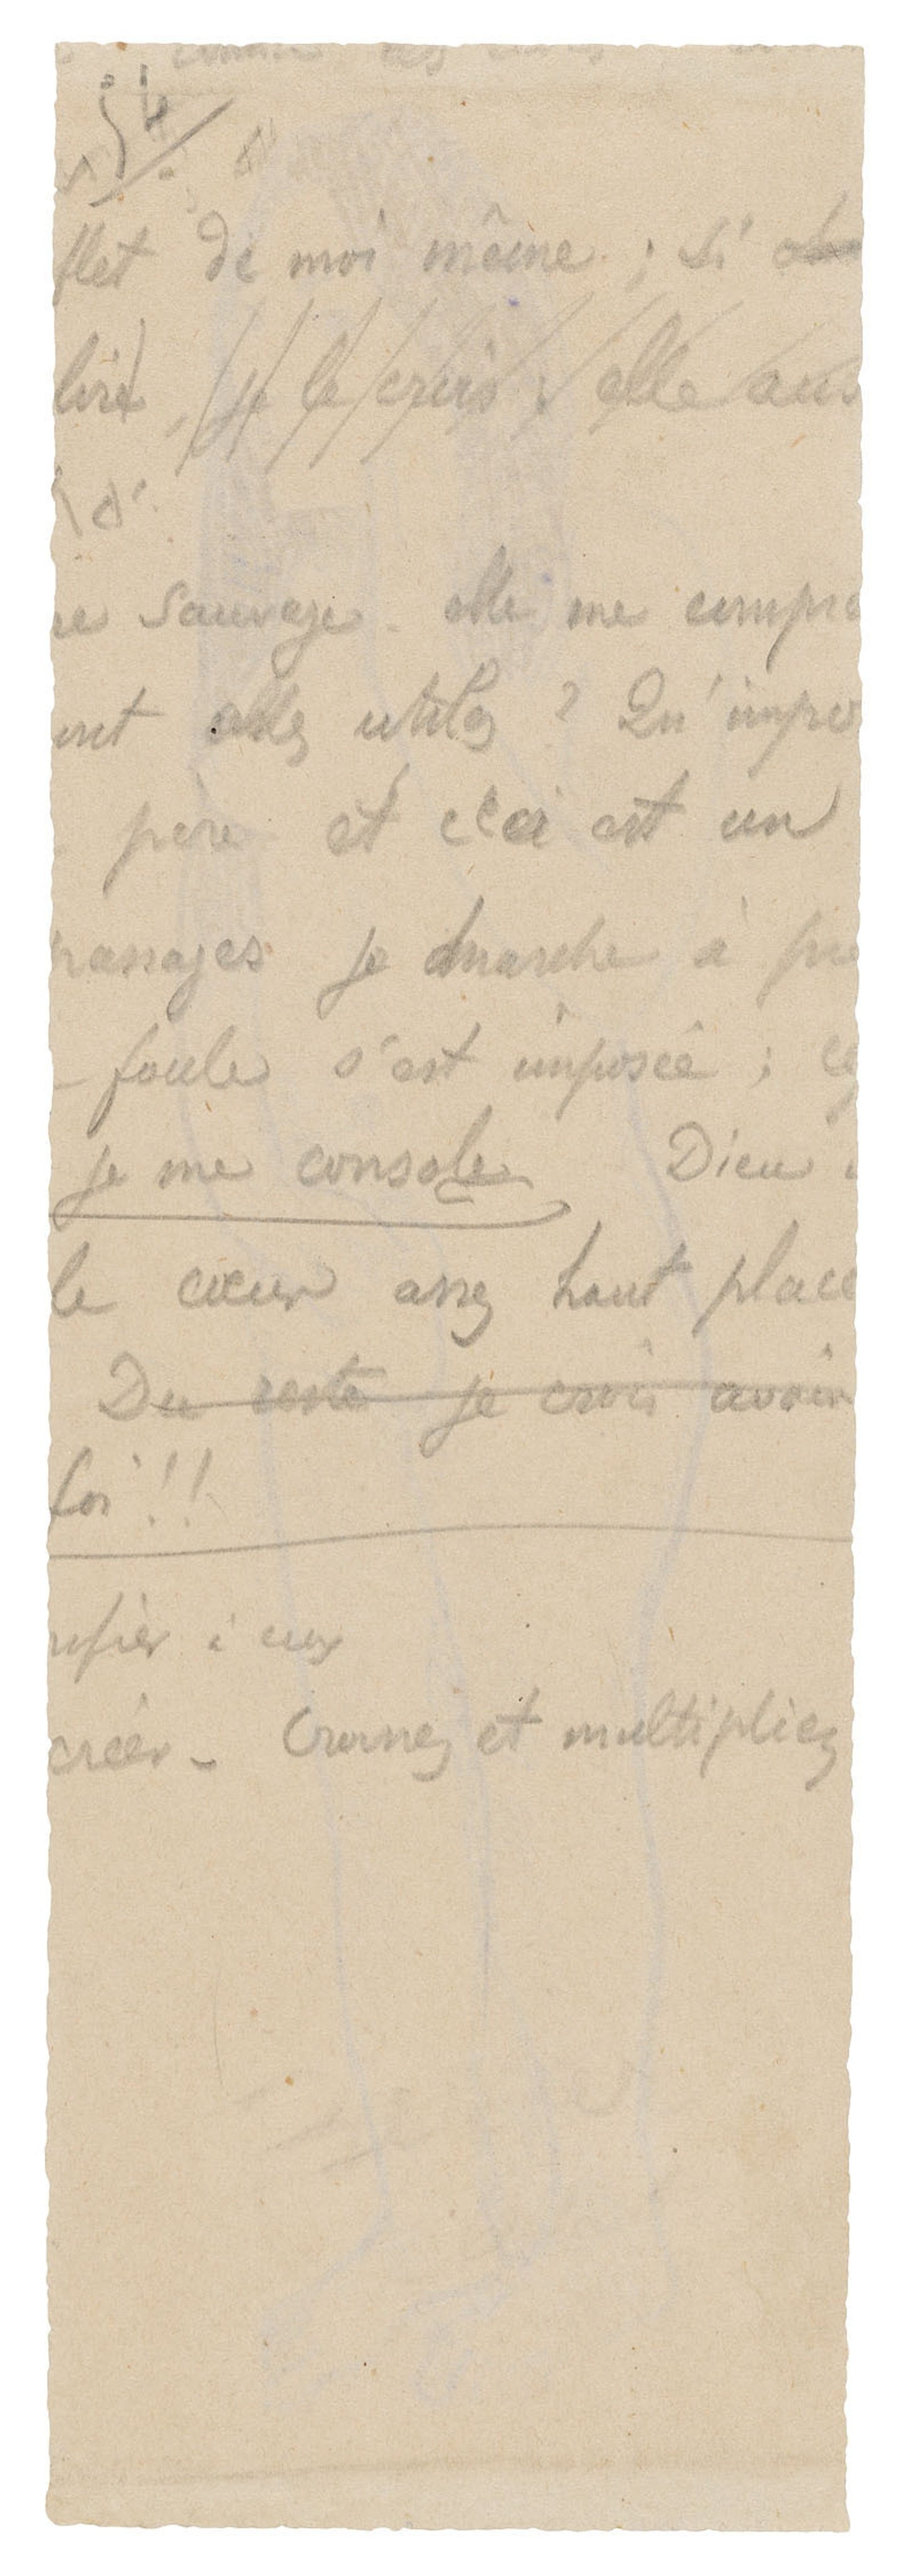 flet de moi même ; si
lire, je le crois : elle aus
re sauvage. elle me compre
ont elles utiles ? Qu'impor
père et ceci est un
passages je marche à pie
foule s'est imposée ;
je me console Dieu
le cœur assez haut placé
Du reste je crois avoir
foi !!
nifier à eux
créer - Croissez et multipliez